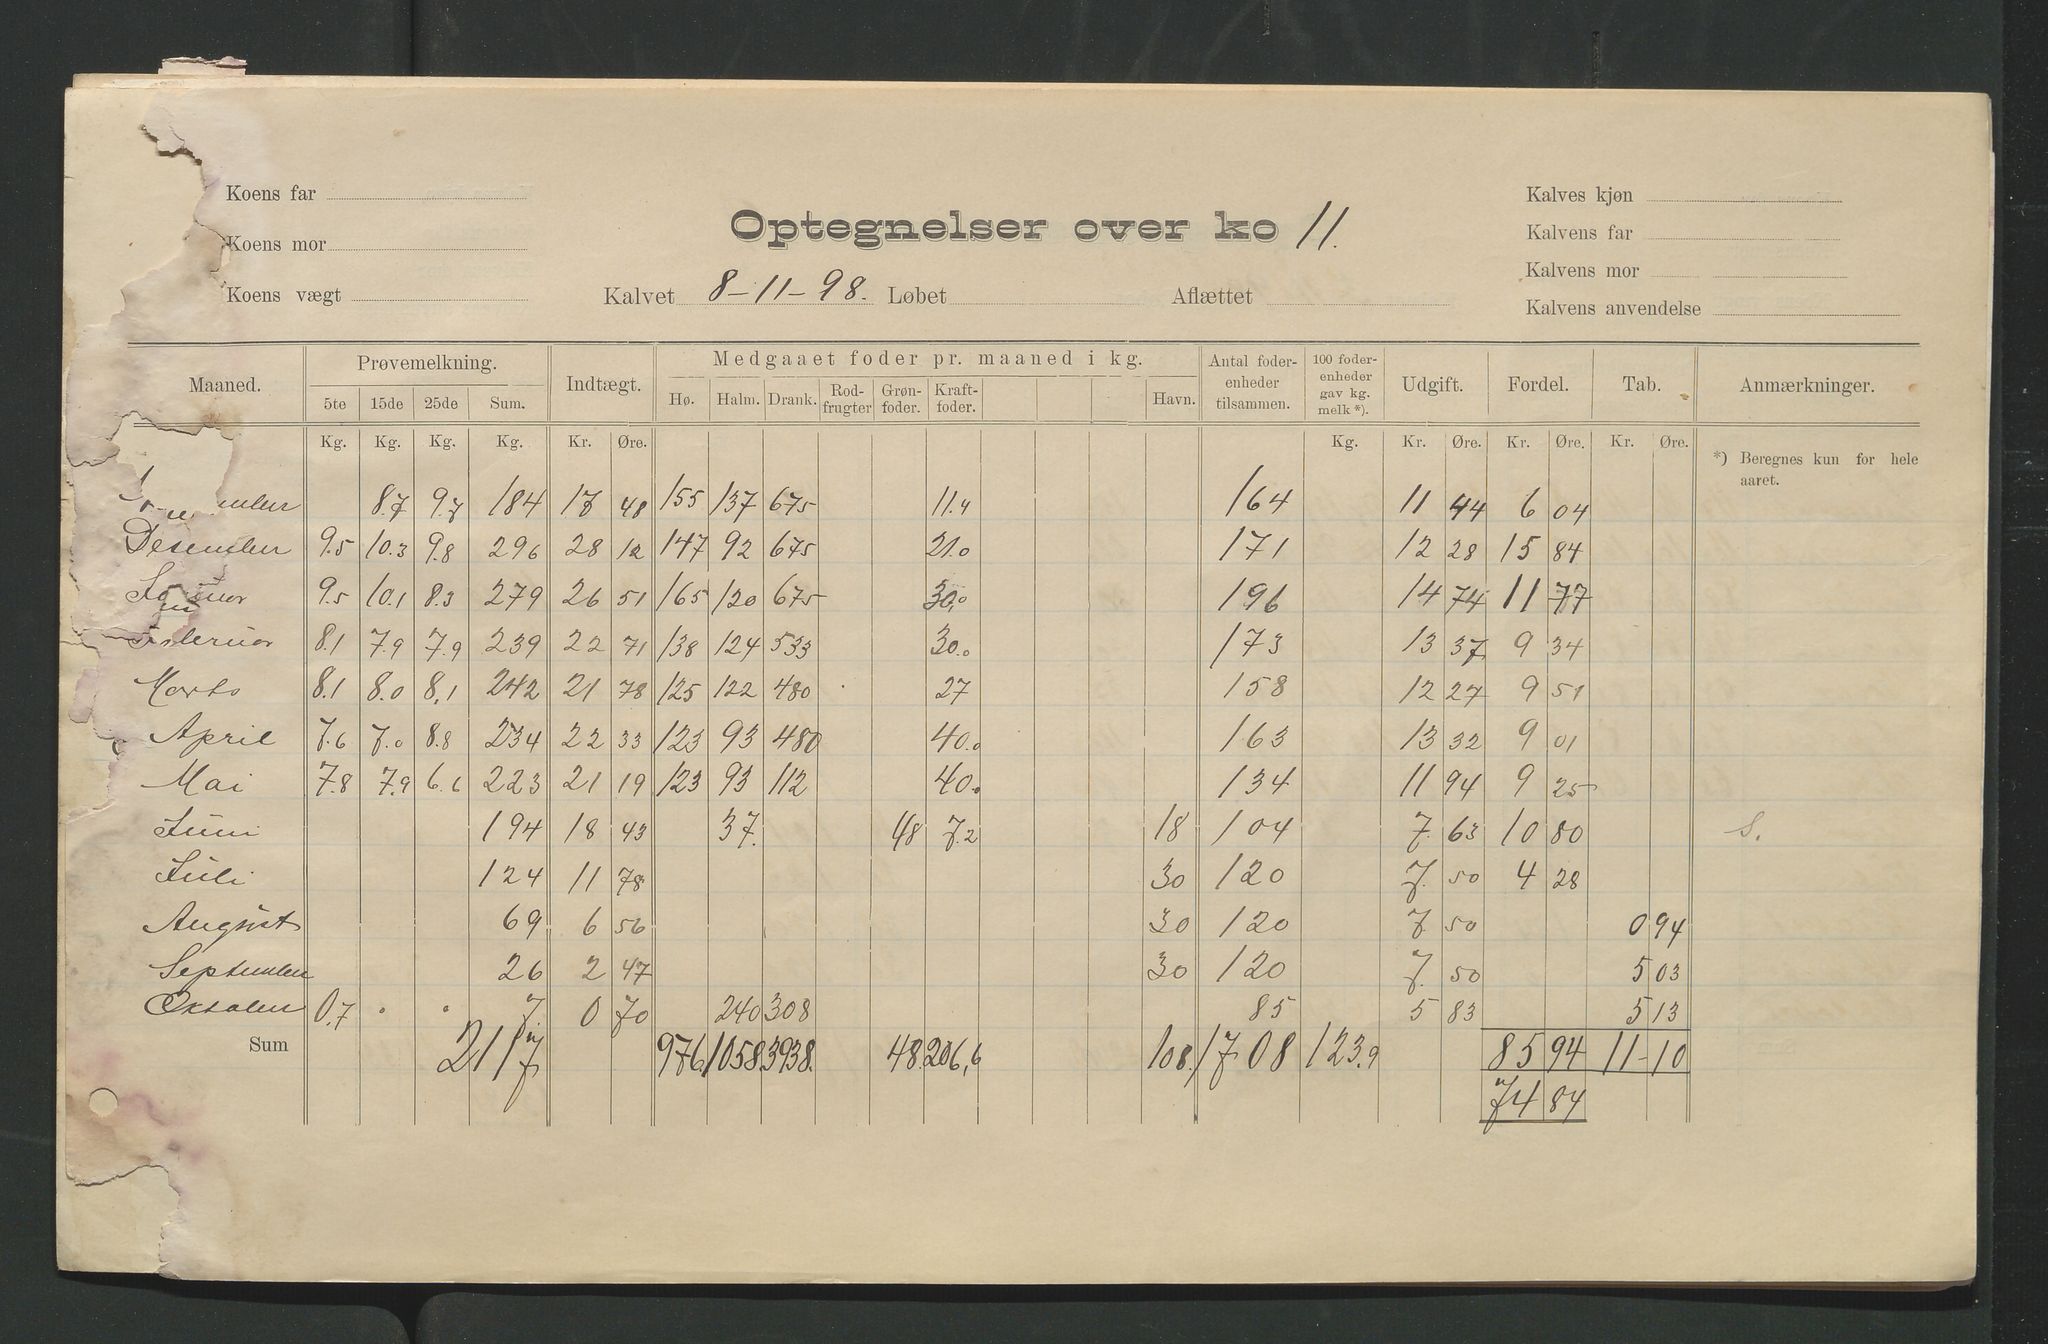 Koens far
Koens mor
Koens vægt
Optegnelser over ko 11.
Kalvet 8-11-98. Løbet Aflættet
Kalves kjøn
Kalvens far
Kalvens mor
Kalvens anvendelse
Maaned. Prøvemelkning. Indtægt. Medgaaet foder pr. maaned i kg. Antal foder-enheder tilsammen. 100 foder-enheder gav kg. melk *). Udgift. Fordel. Tab. Anmærkninger.
5te 15de 25de Sum. Hø. Halm. Drank. Rod-frugter Grøn-foder. Kraft-foder. Havn.
Kg. Kg. Kg. Kg. Kr. Øre. Kg. Kr. Øre. Kr. Øre. Kr. Øre. *) Beregnes kun for hele aaret.
8.7 9.7 184 17 48 155 137 675 11.4 164 11 44 6 04
Desember 9.5 10.3 9.8 296 28 12 147 92 675 21.0 171 12 28 15 84
Januar 9.5 10.1 8.3 279 26 51 165 120 675 30.0 196 14 74 11 77
Februar 8.1 7.9 7.9 239 22 71 138 124 533 30.0 173 13 37 9 34
Marts 8.1 8.0 8.1 242 21 78 125 122 480 27 158 12 27 9 51
April 7.6 7.0 8.8 234 22 33 123 93 480 40.0 163 13 32 9 01
Mai 7.8 7.9 6.6 223 21 19 123 93 112 40.0 134 11 94 9 25
Juni 194 18 43 37. 48 7.2 18 104 7. 63 10 80 S.
Juli 124 11 78 30 120 7. 50 4 28
August 69 6 56 30 120 7. 50 0 94
September 26 2 47 30 120 7. 50 5 03
Oktober 0.7 " " 7 0 70 240 308 85 5 83 5 13
Sum 2117 976. 1058. 3938. 48. 206,6 108. 1708 123.9 85 94 11-10
74 84